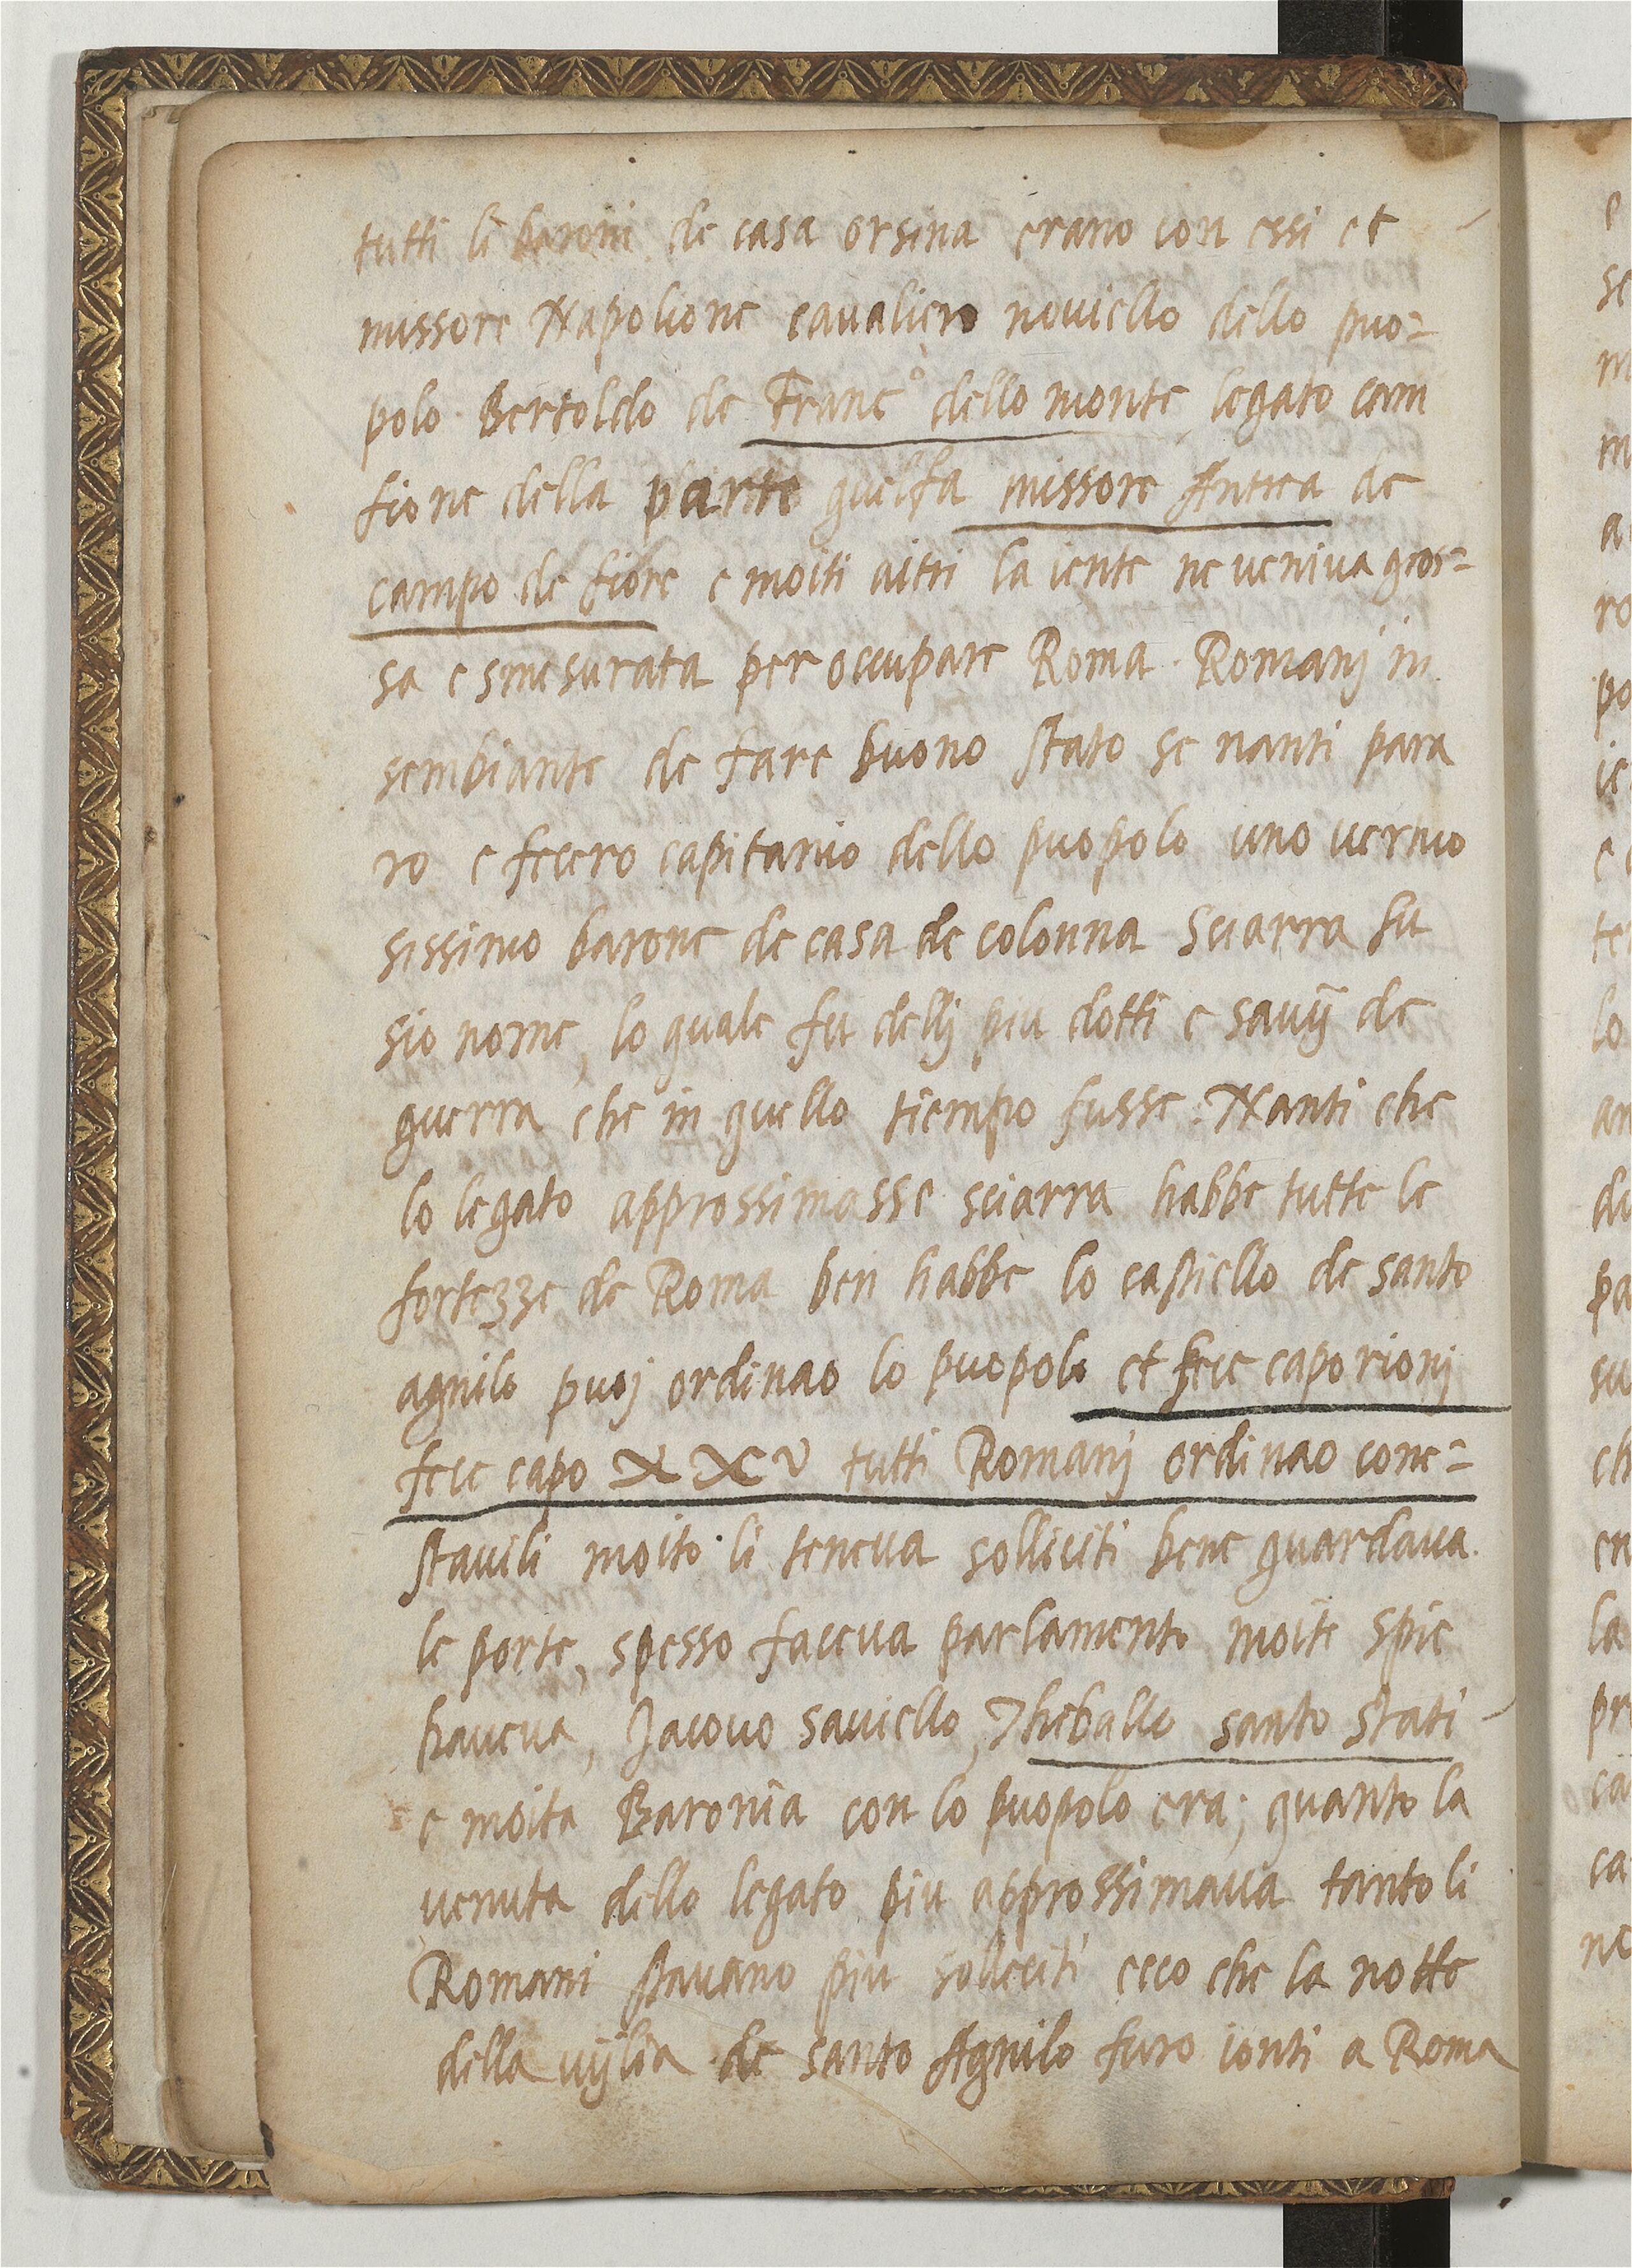 tutti li baroni de casa orsina erano con essi et
missore Napolione cavaliero noviello dello puo=
polo Bertoldo de Franc° dello monte legato cam
fione della parte guelfa missore Antrea de
campo de fiore e moiti aitri la iente ne veniva gros=
sa e smesurata per occupare Roma. Romanj in
sembiante de fare buono stato se nanti para
ro e fecero capitanio dello puopolo uno vertuo
sissimo barone de casa de colonna Sciarra fu
sio nome, lo quale fu dellj piu dotti e savij de
guerra che in quello tiempo fusse. Nanti che
lo legato approssimasse sciarra habbe tutte le
fortezze de Roma ben habbe lo castiello de santo
agnilo puoj ordinao lo puopolo et fece caporionj
fece capo XXV tutti Romanj ordinao cone=
stavili moito li teneva solliciti bene guardava
le porte, spesso faceva parlamento moite spie
haveva, Jacovo saviello, Theballo santo stati
e moita Baronia con lo puopolo era; quanto la
venuta dello legato piu approssimava tanto li
Romani stavano piu solleciti ecco che la notte
della vijlia de santo Agnilo furo ionti a Roma